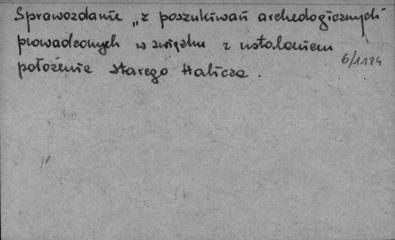 Sprawozdanie „z poszukiwań archeologicznych
prowadzonych w związku z ustaleniem
położenia starego Halicza.
6/1124